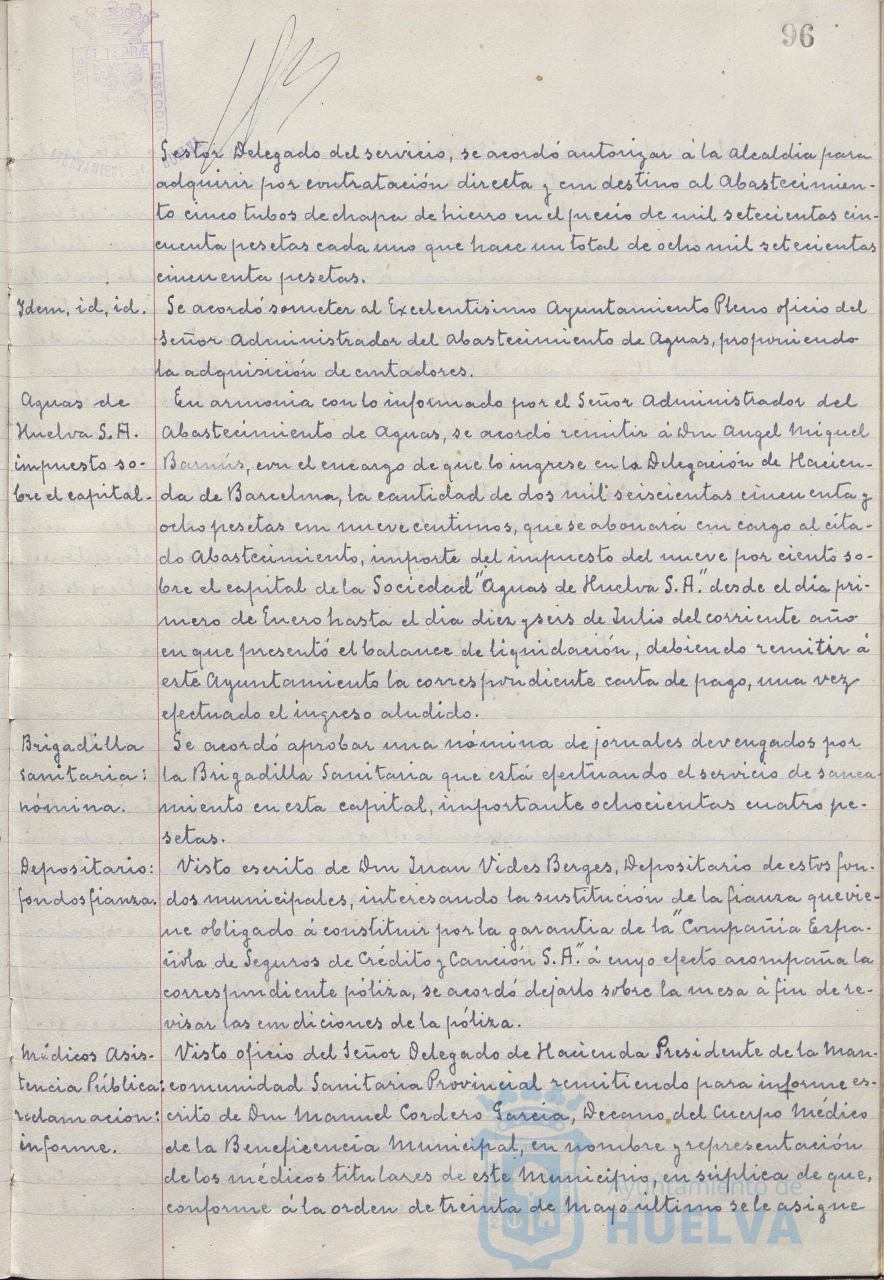 96
PORTUS MARIS ET TERRAE CUSTODIA
Gestor Delegado del servicio, se acordó autorizar á la Alcaldia para
adquirir por contratación directa y con destino al Abastecimien-
to cinco tubos de chapa de hierro en el precio de mil setecientas cin-
cuenta pesetas cada uno que hace un total de ocho mil setecientas
cincuenta pesetas.
Idem, id, id.
Se acordó someter al Excelentisimo Ayuntamiento Pleno oficio del
Señor Administrador del Abastecimiento de Aguas, proponiendo
la adquisición de contadores.
Aguas de
Huelva S.A.
impuesto so-
bre el capital.
En armonia con lo informado por el Señor Administrador del
Abastecimiento de Aguas, se acordó remitir á Don Angel Miguel
Barnús, con el encargo de que lo ingrese en la Delegación de Hacien-
da de Barcelona, la cantidad de dos mil seiscientas cincuenta y
ocho pesetas con nueve centimos, que se abonará con cargo al cita-
do Abastecimiento, importe del impuesto del nueve por ciento so-
bre el capital de la Sociedad "Aguas de Huelva S.A." desde el dia pri-
mero de Enero hasta el dia diez y seis de Julio del corriente año
en que presentó el balance de liquidación, debiendo remitir á
este Ayuntamiento la correspondiente carta de pago, una vez
efectuado el ingreso aludido.
Brigadilla
sanitaria:
nómina.
Se acordó aprobar una nómina de jornales devengados por
la Brigadilla Sanitaria que está efectuando el servicio de sanea-
miento en esta capital, importante ochocientas cuatro pe-
setas.
Depositario:
fondos fianza.
Visto escrito de Don Juan Vides Berges, Depositario de estos fon-
dos municipales, interesando la sustitución de la fianza que vie-
ne obligado á constituir por la garantia de la "Compañia Espa-
ñola de Seguros de Crédito y Caución S.A." á cuyo efecto acompaña la
correspondiente póliza, se acordó dejarlo sobre la mesa á fin de re-
visar las condiciones de la póliza.
Médicos Asis-
tencia Pública:
reclamación:
informe.
Visto oficio del Señor Delegado de Hacienda Presidente de la Man-
comunidad Sanitaria Provincial remitiendo para informe es-
crito de Don Manuel Cordero Garcia, Decano del Cuerpo Médico
de la Beneficencia Municipal, en nombre y representación
de los médicos titulares de este Municipio, en súplica de que,
conforme á la orden de treinta de Mayo ultimo se le asigne
Ayuntamiento de
HUELVA